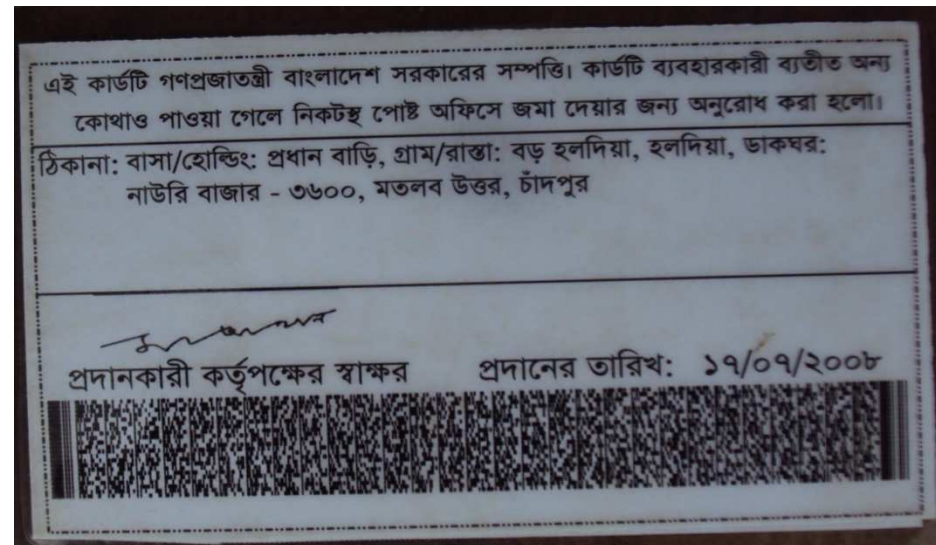 এই কার্ডটি গণপ্রজাতন্ত্রী বাংলাদেশ সরকারের সম্পত্তি। কার্ডটি ব্যবহারকারী ব্যতীত অন্য
কোথাও পাওয়া গেলে নিকটস্থ পোষ্ট অফিসে জমা দেয়ার জন্য অনুরোধ করা হলো।
ঠিকানা: বাসা/হোল্ডিং: প্রধান বাড়ি, গ্রাম/রাস্তা: বড় হলদিয়া, হলদিয়া, ডাকঘর:
নাউরি বাজার - ৩৬০০, মতলব উত্তর, চাঁদপুর
প্রদানকারী কর্তৃপক্ষের স্বাক্ষর প্রদানের তারিখ: ১৭/০৭/২০০৮